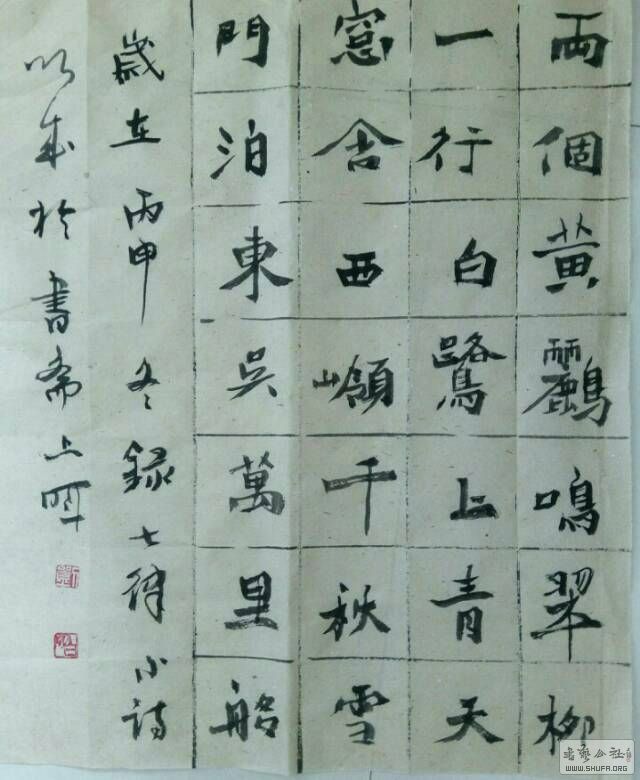 兩個黄鸝鳴翠柳
一行白鷺上青天
窓含西嶺千秋雪
門泊東吳萬里船
歲在丙申冬録七律小詩
以成於書斋上
书艺公社
WWW.SHUFA.ORG